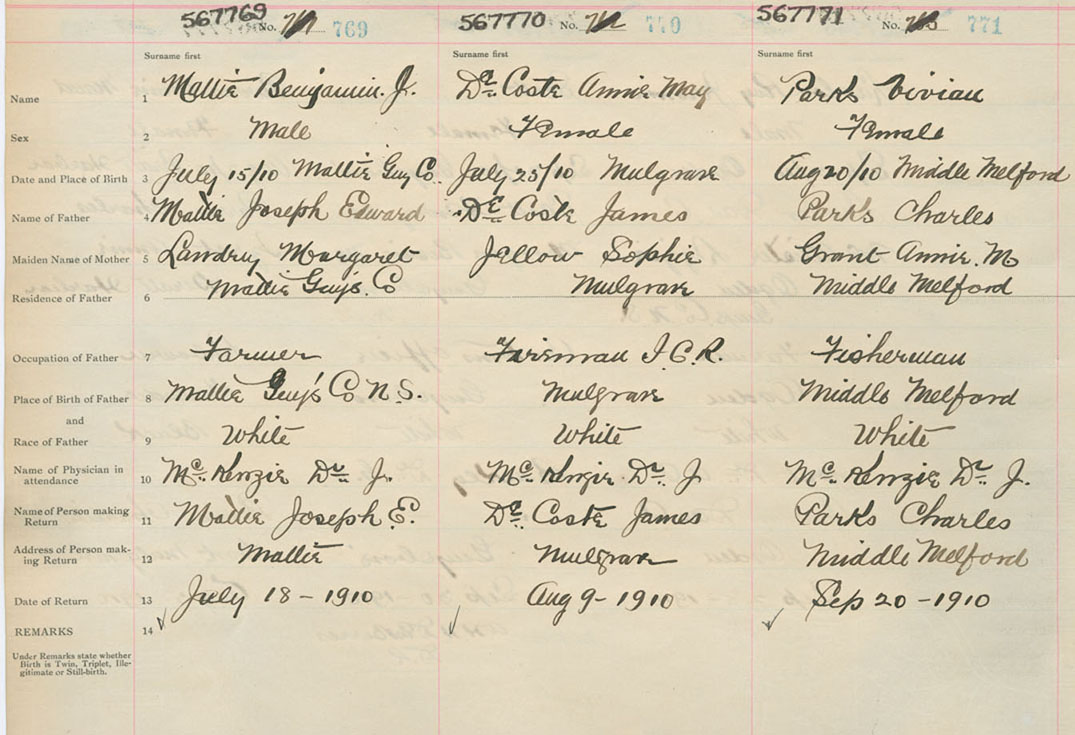 567769 No. 769 567770 No. 770 567771 No. 771
Surname first Surname first Surname first
Name 1 Mattie Benjamin. J. De Coste Annie May Parks Vivian
Sex 2 Male Female Female
Date and Place of Birth 3 July 15/10 Mattie Guy Co. July 25/10 Mulgrave Aug 20/10 Middle Melford
Name of Father 4 Mattie Joseph Edward De Coste James Parks Charles
Maiden Name of Mother 5 Landry Margaret Jellow Sophie Grant Annie. M
Residence of Father 6 Mattie Guy's. Co Mulgrave Middle Melford
Occupation of Father 7 Farmer Fireman I.C.R. Fisherman
Place of Birth of Father 8 Mattie Guy's Co N.S. Mulgrave Middle Melford
and
Race of Father 9 White White White
Name of Physician in
attendance 10 Mc Kenzie Dr J. Mc Kenzie Dr J Mc Kenzie Dr J.
Name of Person making
Return 11 Mattie Joseph E. De Coste James Parks Charles
Address of Person mak-
ing Return 12 Mattie Mulgrave Middle Melford
Date of Return 13 July 18-1910 Aug 9-1910 Sep 20-1910
REMARKS 14
Under Remarks state whether
Birth is Twin, Triplet, Ille-
gitimate or Still-birth.